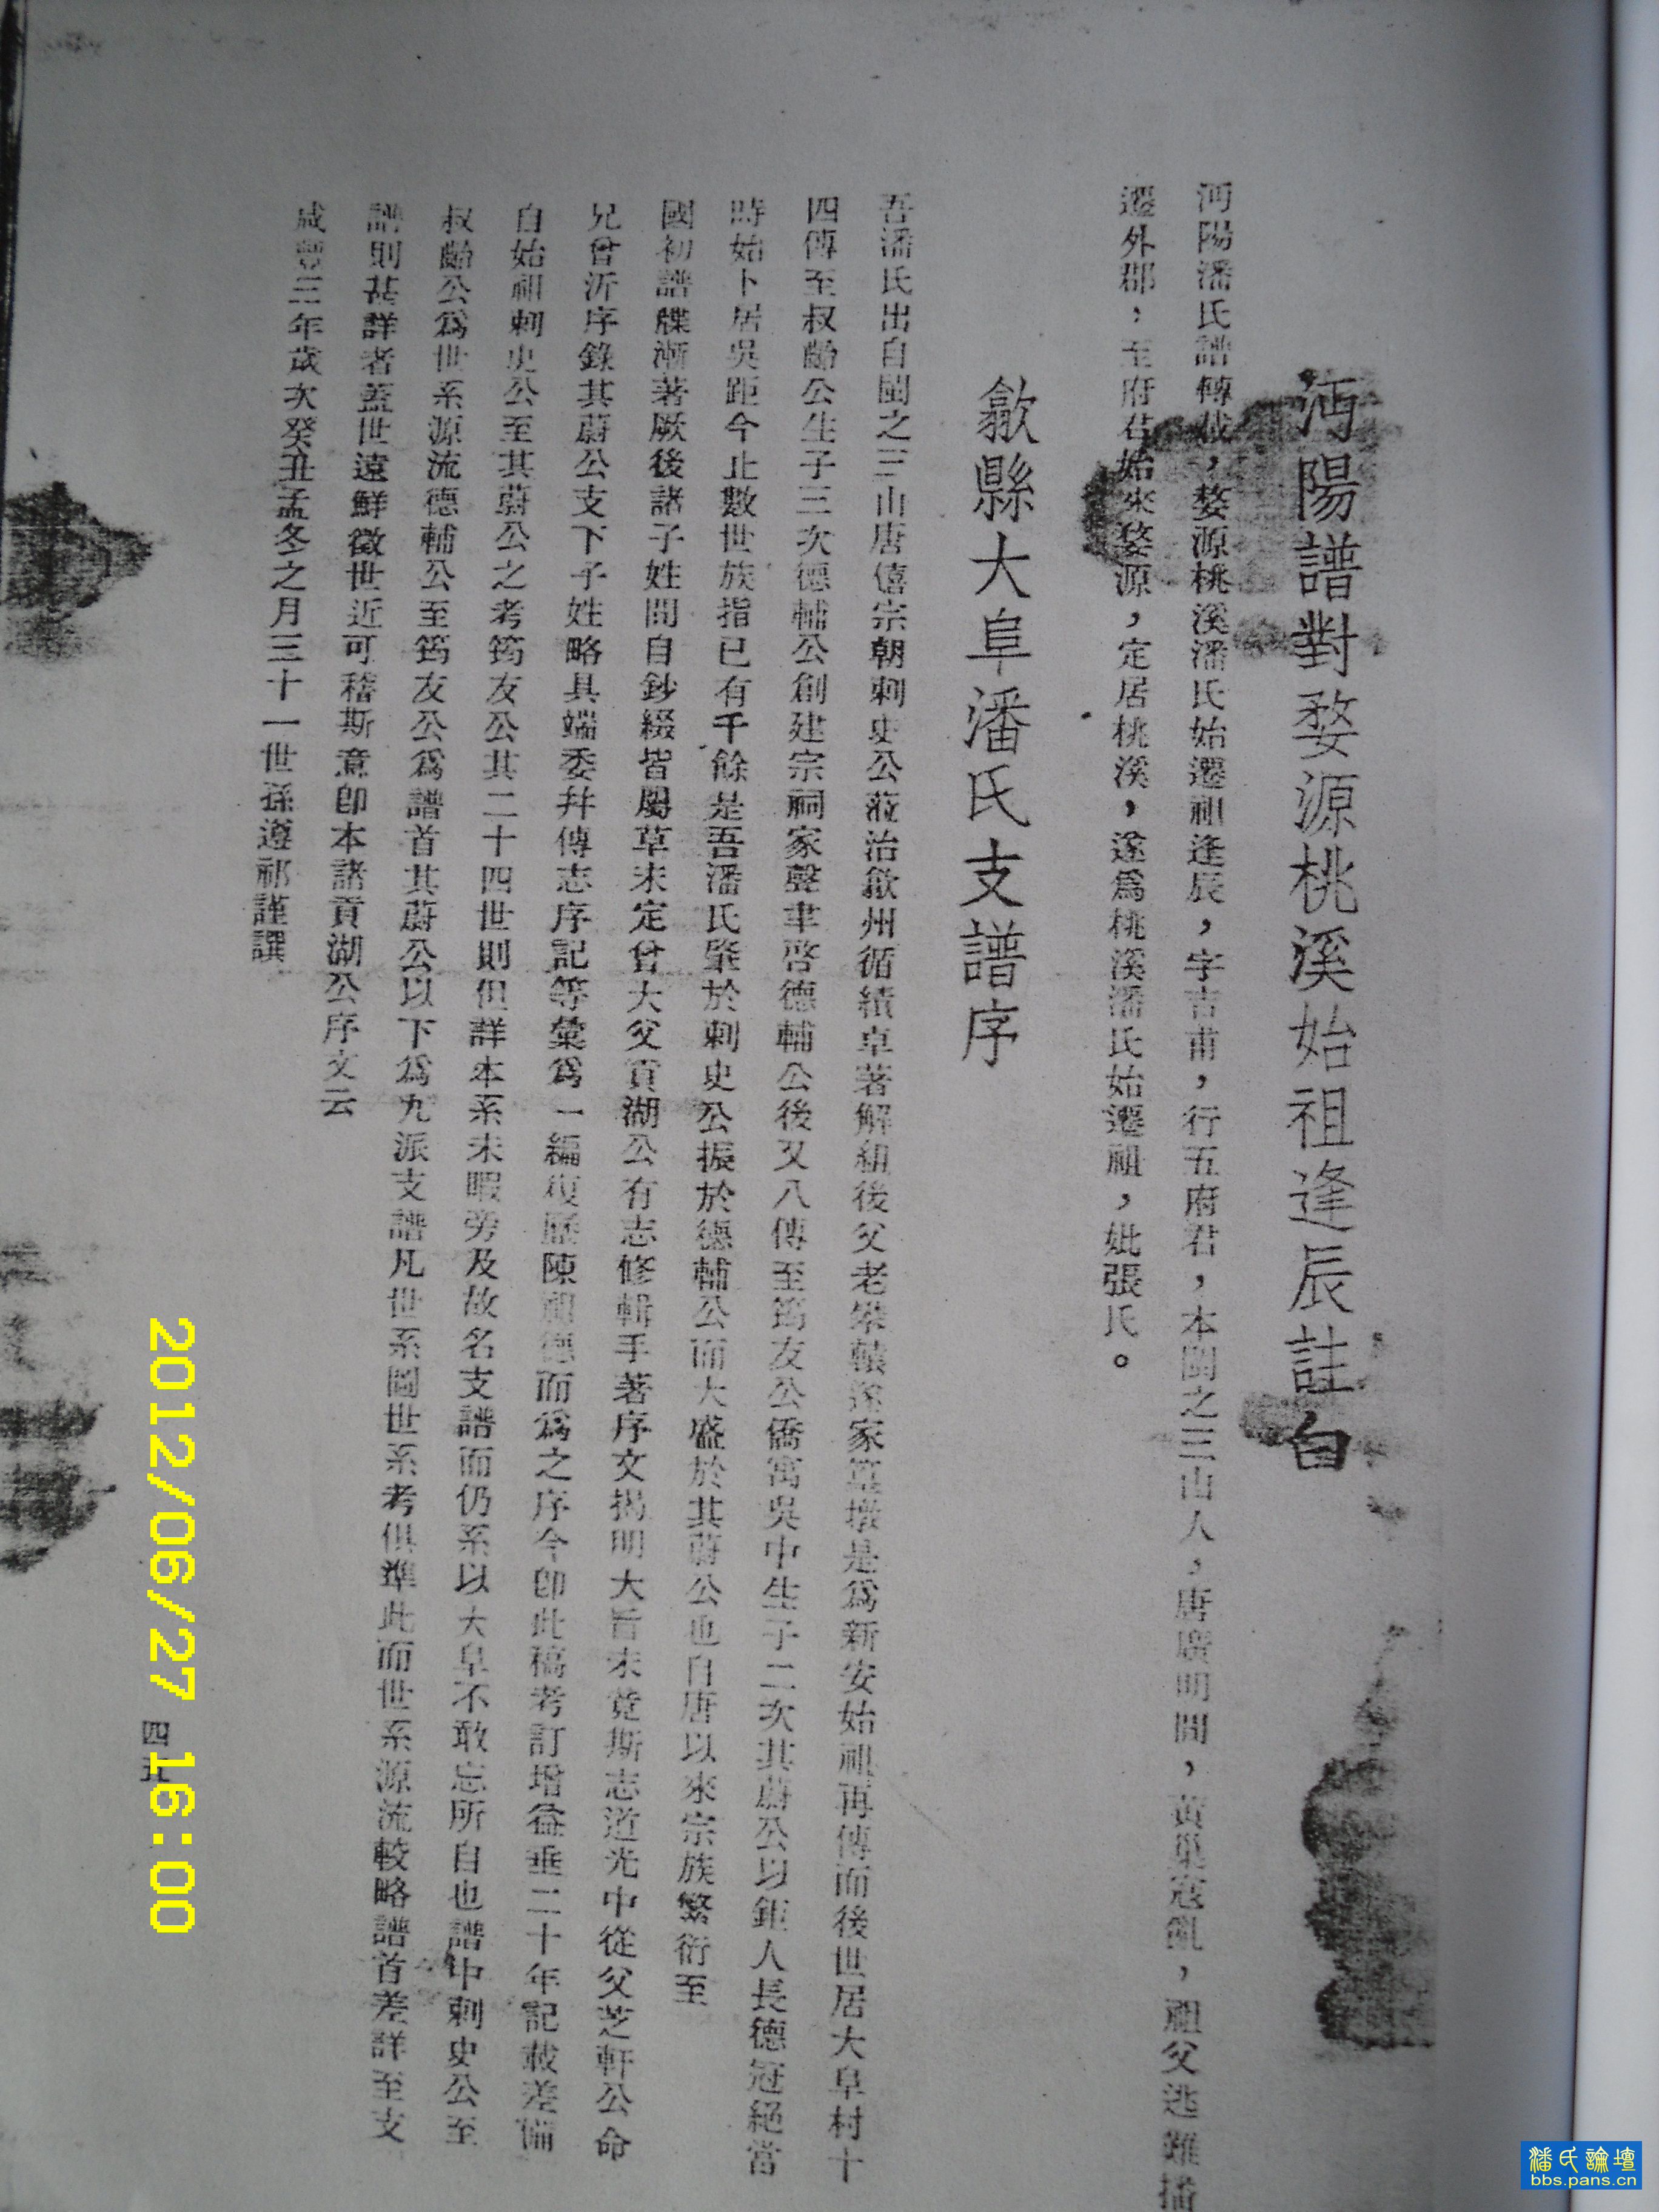 河陽譜對婺源桃溪始祖逢辰註白
河陽潘氏譜轉載，婺源桃溪潘氏始遷祖逢辰，字吉甫，行五府君，本閩之三山人，唐廣明間，黃巢寇亂，祖父逃難播
遷外郡，至府君始來婺源，定居桃溪，遂為桃溪潘氏始遷祖，妣張氏。
歙縣大阜潘氏支譜序
吾潘氏出自閩之三山唐僖宗朝刺史公蒞治歙州循績卓著解組後父老攀轅遂家篁墩是為新安始祖再傳而後世居大阜村十
四傳至叔齡公生子三次德輔公創建宗祠家聲聿啓德輔公後又八傳至筠友公僑寓吳中生子二次其蔚公以鉅人長德冠絕當
時始卜居吳距今止數世族指已有千餘是吾潘氏肇於刺史公振於德輔公而大盛於其蔚公也自唐以來宗族繁衍至
國初譜牒漸著厥後諸子姓間自鈔綴皆屬草未定曾大父貢湖公有志修輯手著序文揭明大旨未竟斯志道光中從父芝軒公命
兄曾沂序錄其蔚公支下子姓略具端委幷傳志序記等彙為一編復歷陳祖德而為之序今卽此稿考訂增益垂二十年記載差備
自始祖刺史公至其蔚公之考筠友公其二十四世則但詳本系未暇旁及故名支譜而仍系以大阜不敢忘所自也譜中刺史公至
叔齡公為世系源流德輔公至筠友公為譜首其蔚公以下為九派支譜凡世系圖世系考俱準此而世系源流較略譜首差詳至支
譜則甚詳者蓋世遠鮮徵世近可稽斯意卽本諸貢湖公序文云
咸豐三年歲次癸丑孟冬之月三十一世孫遵祁謹譔
四五
2012/06/27 16:00
潘氏論壇
bbs.pans.cn